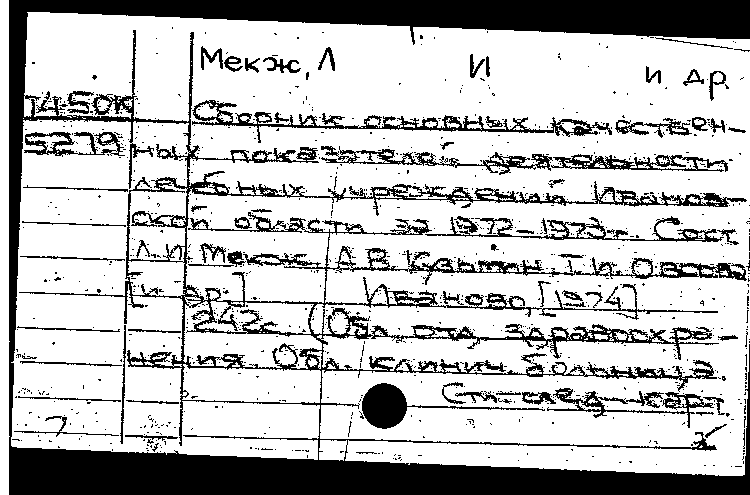 Мекж, Л И и др.
Т450К Сборник основных качествен-
5279 ных показателей деятельности
лечебных учреждений Иванов-
ской области за 1972-1973г. Сост.
Л.И. Мекж, А.В. Кузьмин, Т.И.
[и др.]. Иваново, [1974]
242с. (Обл. отд. здравоохра-
нения. Обл. клинич. больница.
См. след. карт.